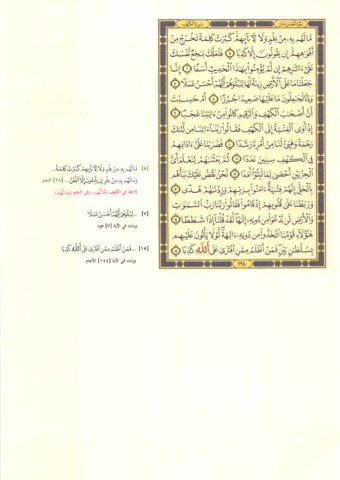 مَّا لَهُم بِهِۦ مِنْ عِلْمٍ وَلَا لِـَٔابَآئِهِمْ ۚ كَبُرَتْ كَلِمَةً تَخْرُجُ مِنْ
أَفْوَٰهِهِمْ ۚ إِن يَقُولُونَ إِلَّا كَذِبًا ٥ فَلَعَلَّكَ بَـٰخِعٌ نَّفْسَكَ
عَلَىٰٓ ءَاثَـٰرِهِمْ إِن لَّمْ يُؤْمِنُوا۟ بِهَـٰذَا ٱلْحَدِيثِ أَسَفًا ٦ إِنَّا
جَعَلْنَا مَا عَلَى ٱلْأَرْضِ زِينَةً لَّهَا لِنَبْلُوَهُمْ أَيُّهُمْ أَحْسَنُ عَمَلًا ٧
وَإِنَّا لَجَـٰعِلُونَ مَا عَلَيْهَا صَعِيدًا جُرُزًا ٨ أَمْ حَسِبْتَ
أَنَّ أَصْحَـٰبَ ٱلْكَهْفِ وَٱلرَّقِيمِ كَانُوا۟ مِنْ ءَايَـٰتِنَا عَجَبًا ٩
إِذْ أَوَى ٱلْفِتْيَةُ إِلَى ٱلْكَهْفِ فَقَالُوا۟ رَبَّنَآ ءَاتِنَا مِن لَّدُنكَ
رَحْمَةً وَهَيِّئْ لَنَا مِنْ أَمْرِنَا رَشَدًا ١٠ فَضَرَبْنَا عَلَىٰٓ ءَاذَانِهِمْ
فِى ٱلْكَهْفِ سِنِينَ عَدَدًا ١١ ثُمَّ بَعَثْنَـٰهُمْ لِنَعْلَمَ أَىُّ
ٱلْحِزْبَيْنِ أَحْصَىٰ لِمَا لَبِثُوٓا۟ أَمَدًا ١٢ نَّحْنُ نَقُصُّ عَلَيْكَ نَبَأَهُم
بِٱلْحَقِّ ۚ إِنَّهُمْ فِتْيَةٌ ءَامَنُوا۟ بِرَبِّهِمْ وَزِدْنَـٰهُمْ هُدًى ١٣
وَرَبَطْنَا عَلَىٰ قُلُوبِهِمْ إِذْ قَامُوا۟ فَقَالُوا۟ رَبُّنَا رَبُّ ٱلسَّمَـٰوَٰتِ
وَٱلْأَرْضِ لَن نَّدْعُوَا۟ مِن دُونِهِۦٓ إِلَـٰهًا ۖ لَّقَدْ قُلْنَآ إِذًا شَطَطًا ١٤
هَـٰٓؤُلَآءِ قَوْمُنَا ٱتَّخَذُوا۟ مِن دُونِهِۦٓ ءَالِهَةً ۖ لَّوْلَا يَأْتُونَ عَلَيْهِم
بِسُلْطَـٰنٍۭ بَيِّنٍ ۖ فَمَنْ أَظْلَمُ مِمَّنِ ٱفْتَرَىٰ عَلَى ٱللَّهِ كَذِبًا ١٥
[٥] مَّا لَهُم بِهِۦ مِنْ عِلْمٍ وَلَا لِـَٔابَآئِهِمْ كَبُرَتْ كَلِمَةً...
وَمَا لَهُم بِهِۦ مِنْ عِلْمٍ إِن يَتَّبِعُونَ إِلَّا ٱلظَّنَّ... [٢٨] النجم
لاحظ في الكهف (مَّا لَهُم) وفي النجم (وَمَا لَهُم)
[٧] ... لِنَبْلُوَهُمْ أَيُّهُمْ أَحْسَنُ عَمَلًا
وردت في الآية [٧] هود
[١٥] ... فَمَنْ أَظْلَمُ مِمَّنِ ٱفْتَرَىٰ عَلَى ٱللَّهِ كَذِبًا
وردت في الآية [١٤٤] الأنعام